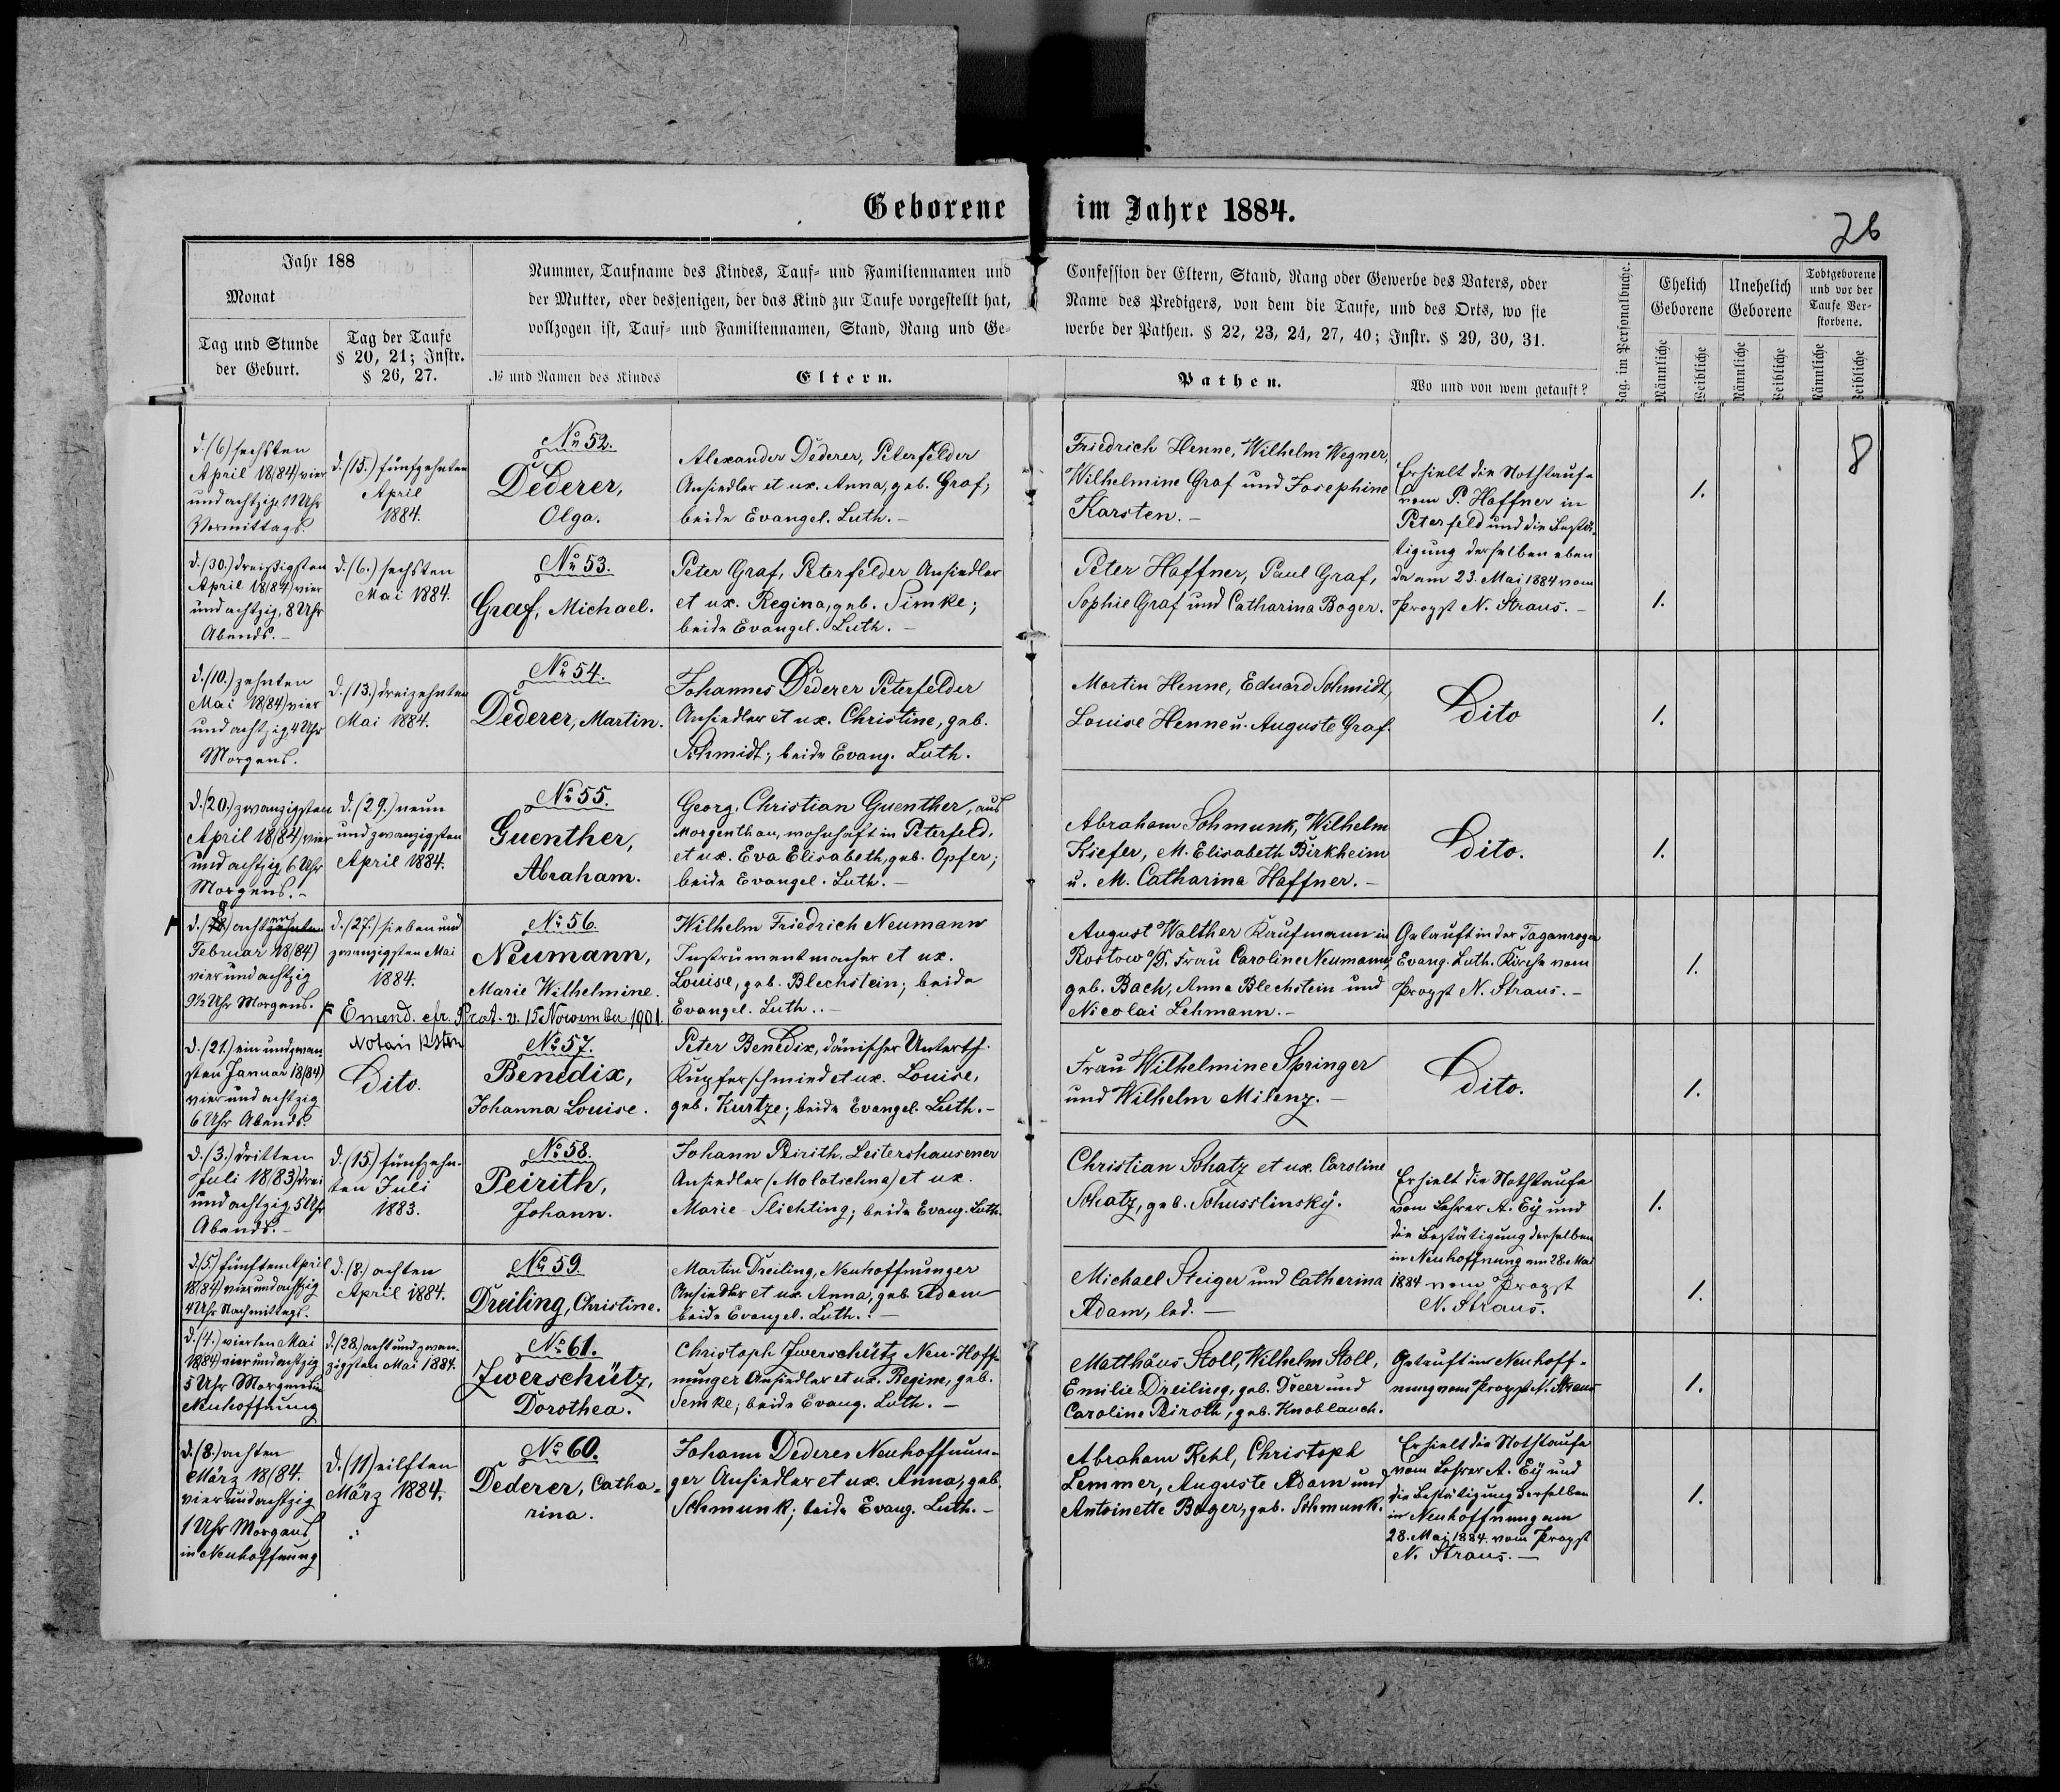 Geborene im Jahre 1884.
26
Jahr 188
Monat
Tag und Stunde
der Geburt.
Tag der Taufe
§ 20, 21; Instr.
§ 26, 27.
Nummer, Taufname des Kindes, Tauf- und Familiennamen und
der Mutter, oder desjenigen, der das Kind zur Taufe vorgestellt hat,
vollzogen ist, Tauf- und Familiennamen, Stand, Rang und Ge-
№ und Namen des Kindes
Eltern.
Confession der Eltern, Stand, Rang oder Gewerbe des Vaters, oder
Name des Predigers, von dem die Taufe, und des Orts, wo sie
werbe der Pathen. § 22, 23, 24, 27, 40; Instr. § 29, 30, 31.
Pathen.
Wo und von wem getauft?
Pag. im Personalbuche.
Ehelich
Geborene
Unehelich
Geborene
Todtgeborene
und vor der
Taufe Ver-
storbene.
Männliche
Weibliche
Männliche
Weibliche
Männliche
Weibliche
8
d. (6) sechsten
April 18(84) vier
und achtzig, 11 Uhr
Vormittags.
d. (15.) fünfzehnten
April
1884.
№ 52.
Dederer,
Olga.
Alexander Dederer, Peterfelder
Ansiedler et ux. Anna, geb. Graf;
beide Evangel. Luth. –
Friedrich Henne, Wilhelm Wegner,
Wilhelmine Graf und Josephine
Karsten. –
Erhielt die Nothtaufe
vom P. Haffner in
Peterfeld und die Bestä-
tigung derselben eben
da am 23. Mai 1884 vom
Propst N. Straus. –
1.
d. (30.) dreißigsten
April 18(84) vier
und achtzig, 8 Uhr
Abends. –
d. (6.) sechsten
Mai 1884.
№ 53.
Graf, Michael.
Peter Graf, Peterfelder Ansiedler
et ux. Regina, geb. Simke;
beide Evangel. Luth. –
Peter Haffner, Paul Graf,
Sophie Graf und Catharina Boger.
1.
d. (10.) zehnten
Mai 18(84) vier
und achtzig, 4 Uhr
Morgens.
d. (13.) dreizehnten
Mai 1884.
№ 54.
Dederer, Martin.
Johannes Dederer Peterfelder
Ansiedler et ux. Christine, geb.
Schmidt; beide Evang. Luth.
Martin Henne, Eduard Schmidt,
Louise Henne u. Auguste Graf.
Dito
1.
d. (20.) zwanzigsten
April 18(84) vier
und achtzig, 6 Uhr
Morgens. –
d. (29.) neun
und zwanzigsten
April 1884.
№ 55.
Guenther,
Abraham.
Georg. Christian Guenther, aus
Morgenthau, wohnhaft in Peterfeld,
et ux. Eva Elisabeth, geb. Opfer;
beide Evangel. Luth. –
Abraham Schmunk, Wilhelm
Kiefer, M. Elisabeth Birkheim
u. M. Catharina Haffner. –
Dito.
1.
Februar 18(84)
vier und achtzig
9½ Uhr Morgens.
d. (27.) sieben und
zwanzigsten Mai
1884.
№ 56.
Neumann,
Marie Wilhelmine.
Emend. cfr. Prot. v. 15 November 1901.
Wilhelm Friedrich Neumann
Instrumentmacher et ux.
Louise, geb. Blechstein; beide
Evangel. Luth. –
August Walther Kaufmann in
Rostow a/D. Frau Caroline Neumann,
geb. Bach, Anna Blechstein und
Nicolai Lehmann. –
Getauft in der Taganroger
Evang. Luth. Kirche vom
Propst N. Straus. –
1.
d. (21.) ein und zwan-
sten Januar 18(84)
vier und achtzig
6 Uhr Abends.
Dito.
№ 57.
Benedix,
Johanna Louise.
Peter Benedix, dänischer Unterth.
Kupferschmied et ux. Louise,
geb. Kurtze; beide Evangel. Luth. –
Frau Wilhelmine Springer
und Wilhelm Milenz. –
Dito.
1.
d. (3.) dritten
Juli 18(83) drei
und achtzig, 5 Uhr
Abends. –
d. (15.) fünfzehn-
ten Juli
1883.
№ 58.
Peirith,
Johann.
Johann Peirith, Leitershausener
Ansiedler (Molotschna) et ux.
Marie Slichting; beide Evang. Luth.
Christian Schatz et ux. Caroline
Schatz, geb. Schusslinsky.
Erhielt die Nothtaufe
vom Lehrer A. Ey und
die Bestätigung derselben
in Neuhoffnung am 28. Mai
1884 vom Propst
N. Straus.
1.
d. (5.) fünften April
18(84) vier und achtzig
4 Uhr Nachmittags.
d. (8.) achten
April 1884.
№ 59.
Dreiling, Christine.
Martin Dreiling, Neuhoffnunger
Ansiedler et ux. Anna, geb. Adam
beide Evangel. Luth. –
Michael Steiger und Catharina
Adam, led. –
1.
d. (4.) vierten Mai
18(84) vier und achtzig
5 Uhr Morgens in
Neuhoffnung
d. (28.) acht und zwan-
zigsten Mai 1884.
№ 61.
Zwerschütz,
Dorothea.
Christoph Zwerschütz Neu-Hoff-
nunger Ansiedler et ux. Regine, geb.
Semke; beide Evang. Luth. –
Matthäus Stoll, Wilhelm Stoll,
Emilie Dreiling, geb. Dreer und
Caroline Peiroth, geb. Knoblauch.
Getauft in Neuhoff-
nung vom Propst N. Straus
1.
d. (8.) achten
März 18/84.
vier und achtzig
1 Uhr Morgens
in Neuhoffnung
d. (11) eilften
März 1884.
№ 60.
Dederer, Catha-
rina.
Johann Dederer Neuhoffnun-
ger Ansiedler et ux. Anna, geb.
Schmunk; beide Evang. Luth. –
Abraham Kehl, Christoph
Lemmer, Auguste Adam und
Antoinette Boger, geb. Schmunk.
Erhielt die Nothtaufe
vom Lehrer A. Ey und
die Bestätigung derselben
in Neuhoffnung am
28. Mai 1884. vom Propst
N. Straus. –
1.